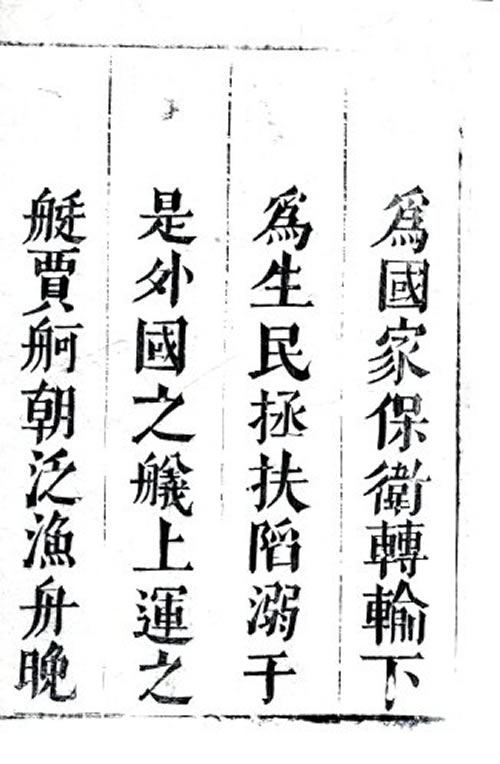 為國家保衛轉輸下
為生民拯扶陷溺于
是外國之艤上運之
艇賈舸朝泛漁舟晚